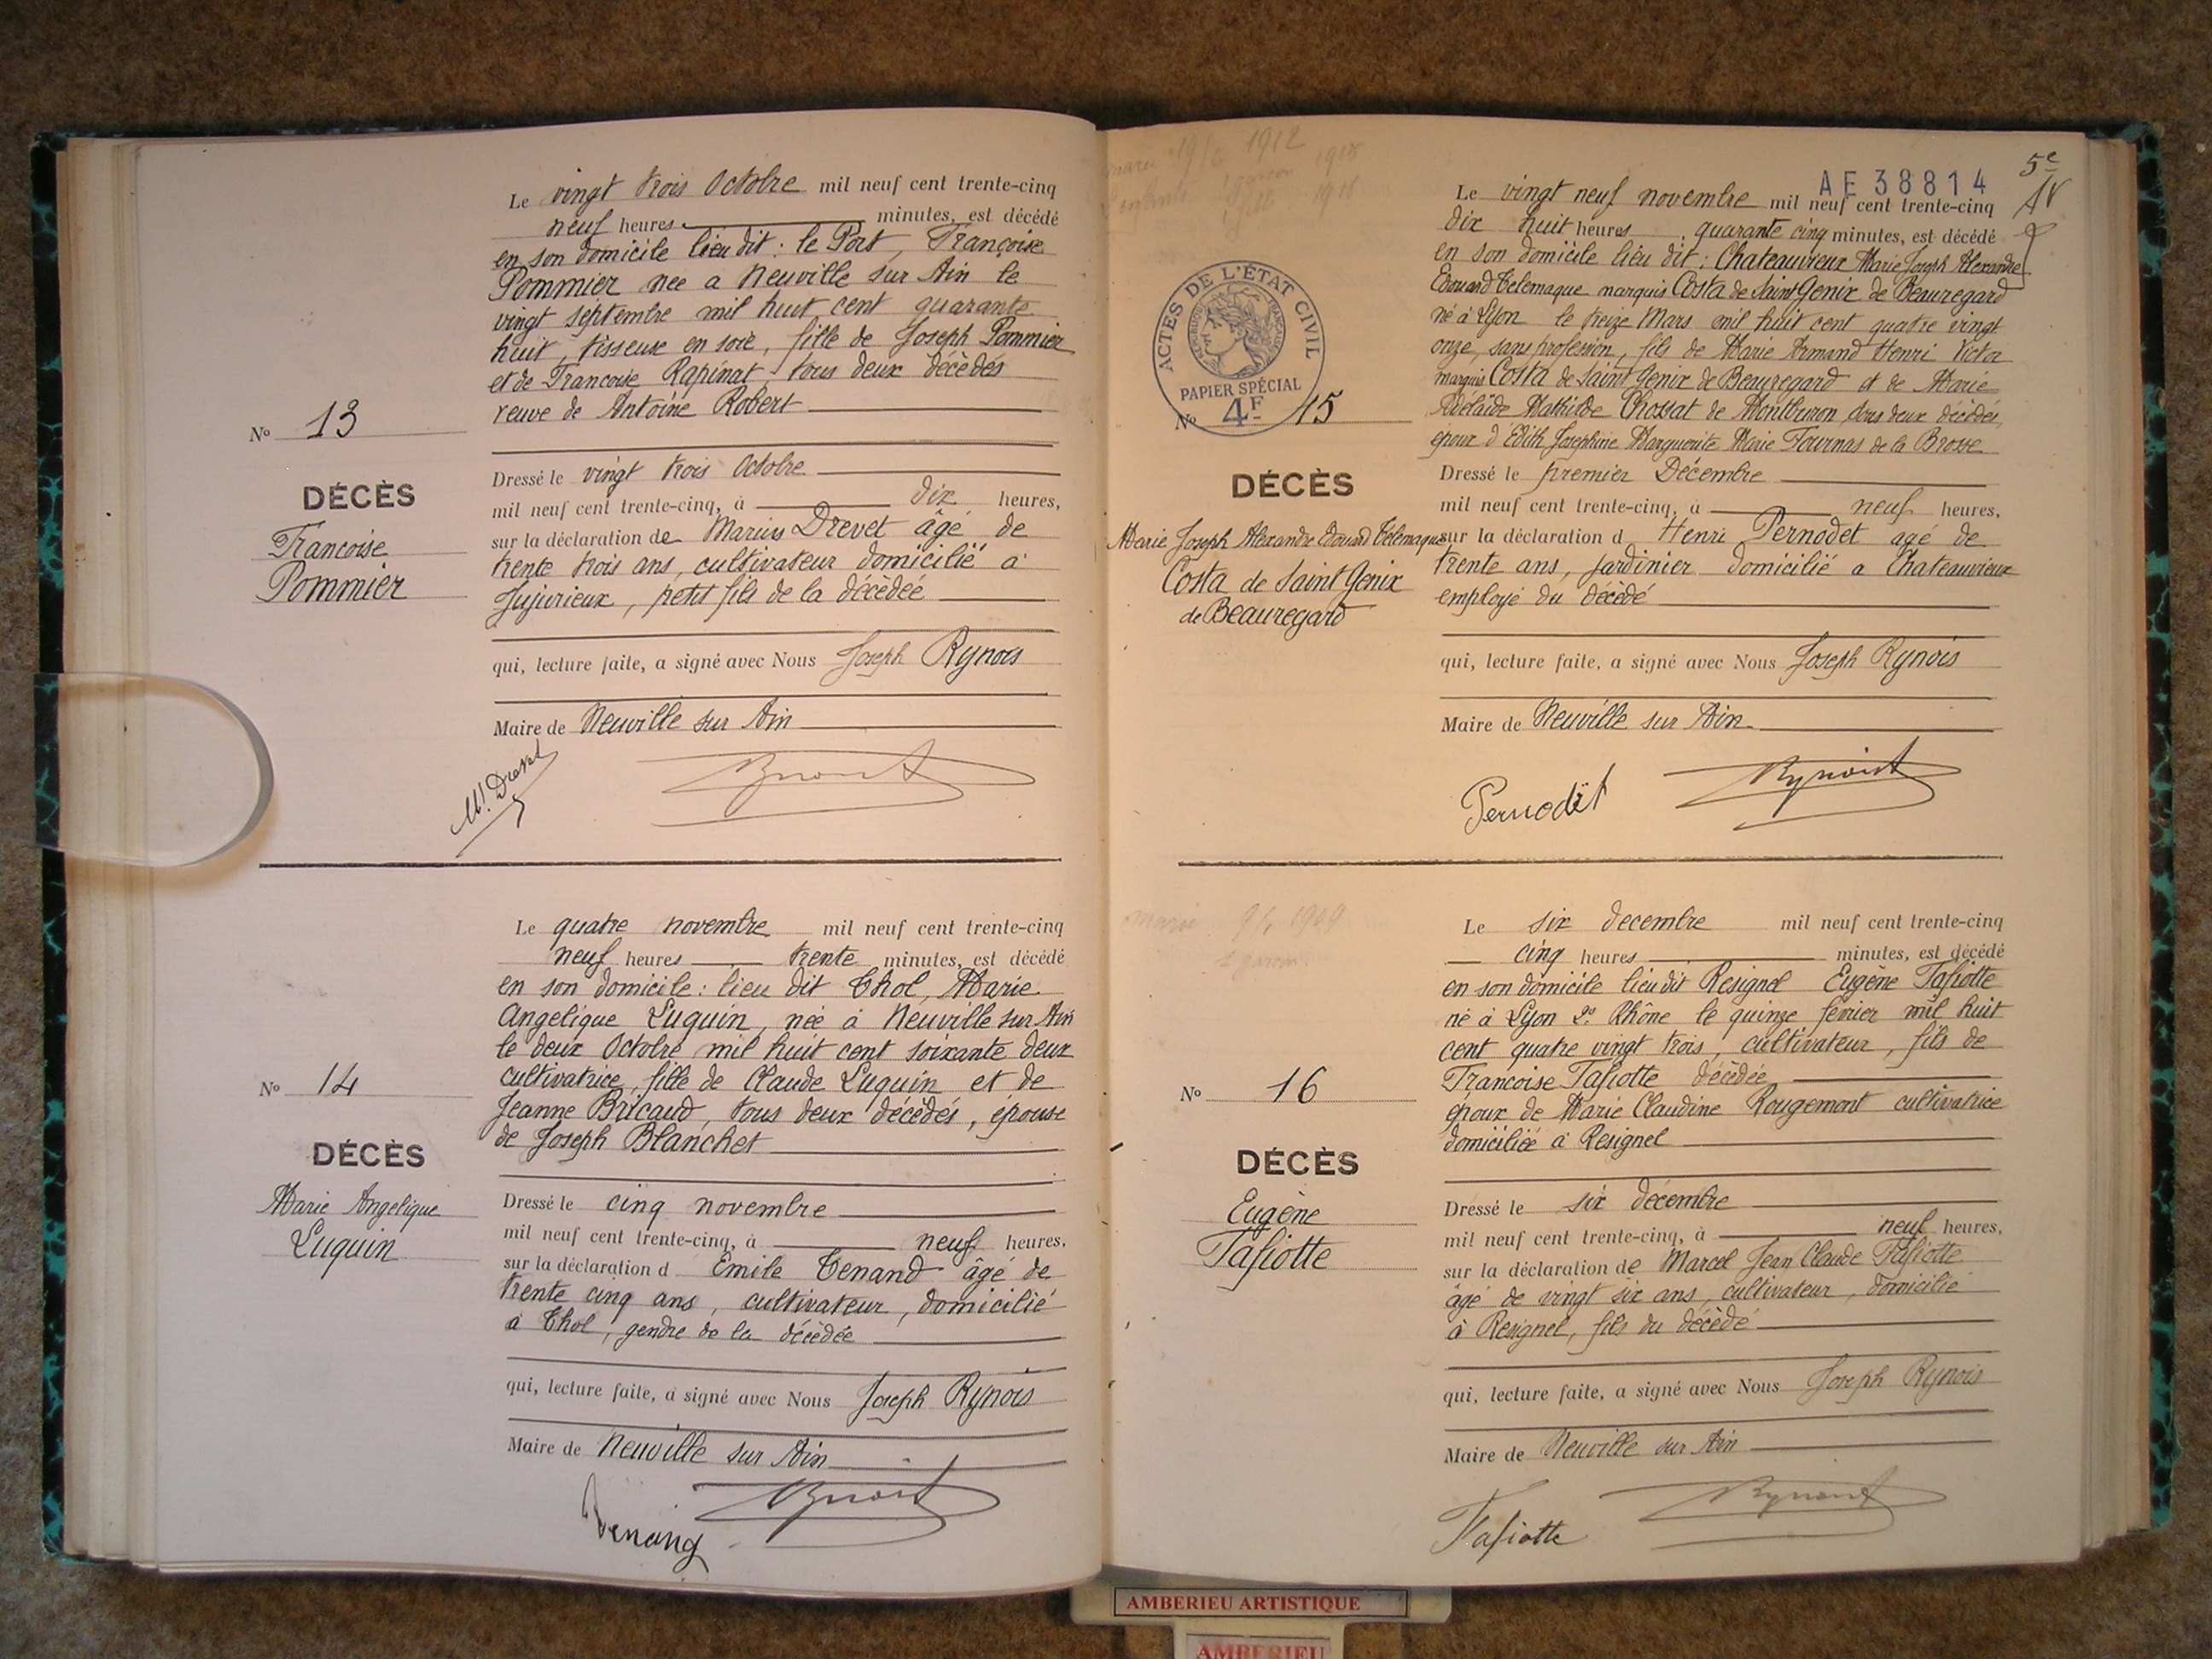 Le vingt trois Octobre mil neuf cent trente-cinq
neuf heures minutes, est décédé
en son domicile lieu dit : le Port, Françoise
Pommier née a Neuville sur Ain le
vingt septembre mil huit cent quarante
huit, tisseuse en soie, fille de Joseph Pommier
et de Francoise Rapinat, tous deux décédés
veuve de Antoine Robert
No 13
DÉCÈS
Francoise
Pommier
Dressé le vingt trois Octobre
mil neuf cent trente-cinq, à dix heures,
sur la déclaration de Marius Drevet âgé de
trente trois ans, cultivateur domicilié à
Jujurieux, petit fils de la décédée
qui, lecture faite, a signé avec Nous Joseph Rynois
Maire de Neuville sur Ain
M. Drevet
Rynois
Le quatre novembre mil neuf cent trente-cinq
neuf heures trente minutes, est décédé
en son domicile : lieu dit Thol, Marie
Angelique Luquin, née à Neuville sur Ain
le deux Octobre mil huit cent soixante deux
cultivatrice, fille de Claude Luquin et de
Jeanne Bricaud, tous deux décédés, épouse
de Joseph Blanchet
No 14
DÉCÈS
Marie Angelique
Luquin
Dressé le cinq novembre
mil neuf cent trente-cinq, à neuf heures,
sur la déclaration d Emile Tenand âgé de
trente cinq ans, cultivateur, domicilié
à Thol, gendre de la décédée
qui, lecture faite, a signé avec Nous Joseph Rynois
Maire de Neuville sur Ain
Tenand
Rynois
1912
1915
1916
5e
AE 38814
Le vingt neuf novembre mil neuf cent trente-cinq
dix huit heures, quarante cinq minutes, est décédé
en son domicile lieu dit : Chateauvieux Marie Joseph Alexandre
Edouard Télemaque marquis Costa de Saint Genix de Beauregard
né à Lyon le treize Mars mil huit cent quatre vingt
onze, sans profession, fils de Marie Armand Henri Victor
marquis Costa de Saint Genix de Beauregard et de Marie
Adelaïde Mathilde Chossat de Montburon, tous deux décédés,
époux d'Edith Josephine Marguerite Marie Fournas de la Brosse
ACTES DE L'ÉTAT CIVIL
RÉPUBLIQUE FRANÇAISE
PAPIER SPÉCIAL
4F
No 15
DÉCÈS
Marie Joseph Alexandre Edouard Télemaque
Costa de Saint Genix
de Beauregard
Dressé le premier Décembre
mil neuf cent trente-cinq, à neuf heures,
sur la déclaration d Henri Pernodet agé de
trente ans, jardinier domicilié a Chateauvieux
employé du décédé
qui, lecture faite, a signé avec Nous Joseph Rynois
Maire de Neuville sur Ain
Pernodet
Rynois
marié 1909
1 garcon
Le six decembre mil neuf cent trente-cinq
cinq heures minutes, est décédé
en son domicile lieu dit Resignel Eugène Tafiotte
né à Lyon 2e Rhône le quinze février mil huit
cent quatre vingt trois, cultivateur, fils de
Francoise Tafiotte décédée
époux de Marie Claudine Rougemont cultivatrice
domiciliée à Resignel
No 16
DÉCÈS
Eugène
Tafiotte
Dressé le six décembre
mil neuf cent trente-cinq, à neuf heures,
sur la déclaration de Marcel Jean Claude Tafiotte
âgé de vingt six ans, cultivateur, domicilié
à Resignel, fils du décédé
qui, lecture faite, a signé avec Nous Joseph Rynois
Maire de Neuville sur Ain
Tafiotte
Rynois
AMBERIEU ARTISTIQUE
AMBERIEU